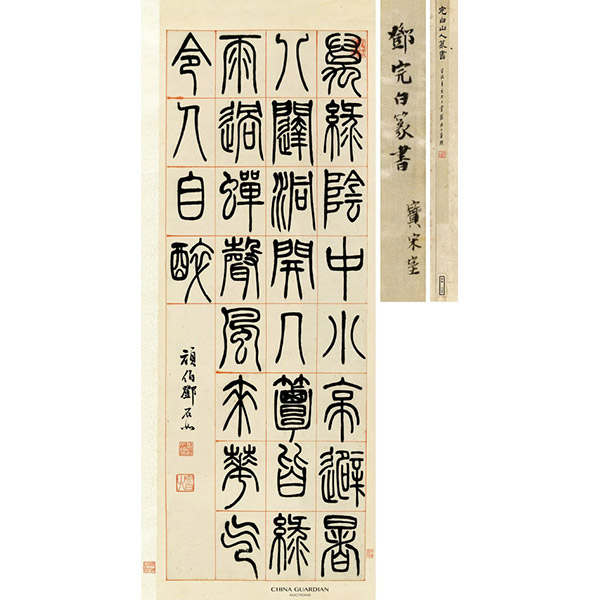 完白山人篆書
鄧完白篆書
寶宋室
萬綠陰中小亭避暑
八闥洞開几簟皆綠
雨過蟬聲風來華气
令人自醉
頑伯鄧石如
CHINA GUARDIAN
AUCTIONS